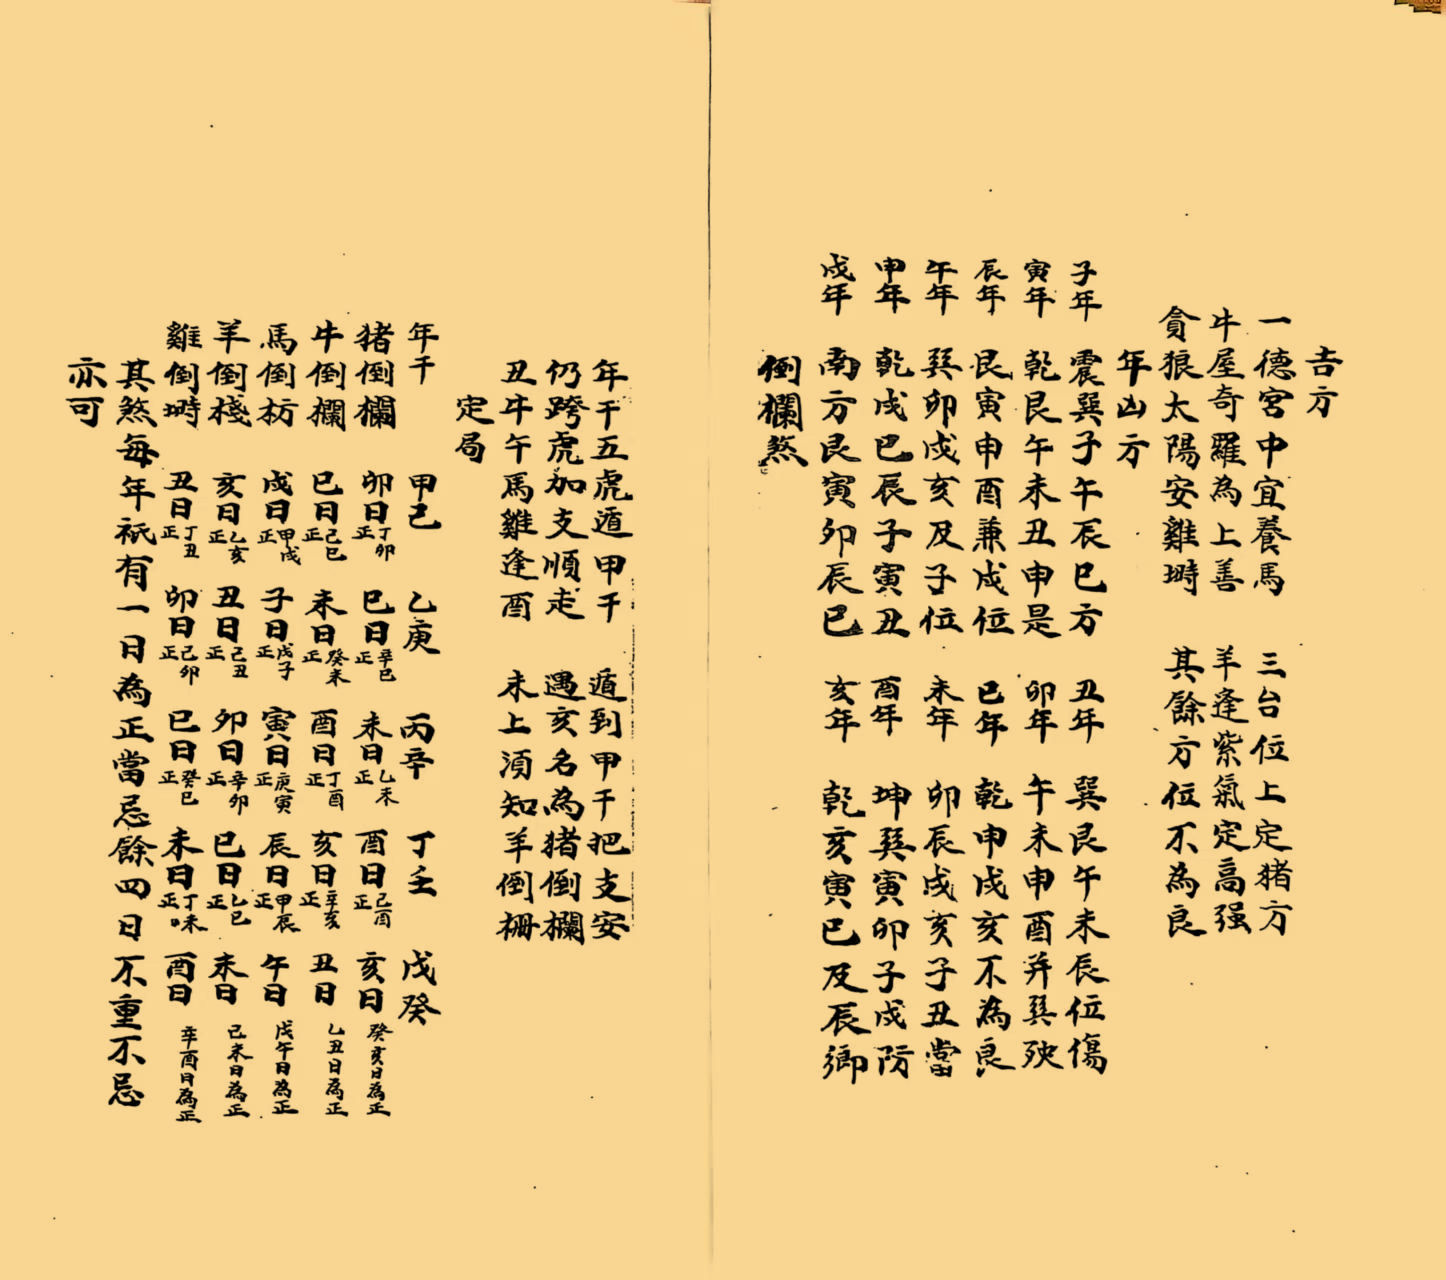 吉方
一德宮中宜養馬　三台位上定猪方
牛屋奇羅為上善　羊逢紫氣定高强
貪狼太陽安雞塒　其餘方位不為良
年凶方
子年　震巽子午辰巳方　丑年　巽艮午未辰位傷
寅年　乾艮午未丑申是　卯年　午未申酉并巽殃
辰年　艮寅申酉兼戌位　巳年　乾申戌亥不為良
午年　巽卯戌亥及子位　未年　卯辰戌亥子丑當
申年　乾戌巳辰子寅丑　酉年　坤巽寅卯子戌防
戌年　南方艮寅卯辰巳　亥年　乾亥寅巳及辰鄉
倒欄煞
年干五虎遁甲干　遁到甲干把支安
仍跨虎加支順走　遇亥名為猪倒欄
丑牛午馬雞逢酉　未上須知羊倒栅
定局
年干　甲己　乙庚　丙辛　丁壬　戊癸
猪倒欄　卯日丁卯正　巳日辛巳正　未日乙未正　酉日己酉正　亥日癸亥日為正
牛倒欄　巳日己巳正　未日癸未正　酉日丁酉正　亥日辛亥正　丑日乙丑日為正
馬倒枋　戌日甲戌正　子日戊子正　寅日庚寅正　辰日甲辰正　午日戊午日為正
羊倒棧　亥日乙亥正　丑日己丑正　卯日辛卯正　巳日乙巳正　未日己未日為正
雞倒塒　丑日丁丑正　卯日己卯正　巳日癸巳正　未日丁未正　酉日辛酉日為正
其煞每年祇有一日為正當忌餘四日不重不忌
亦可